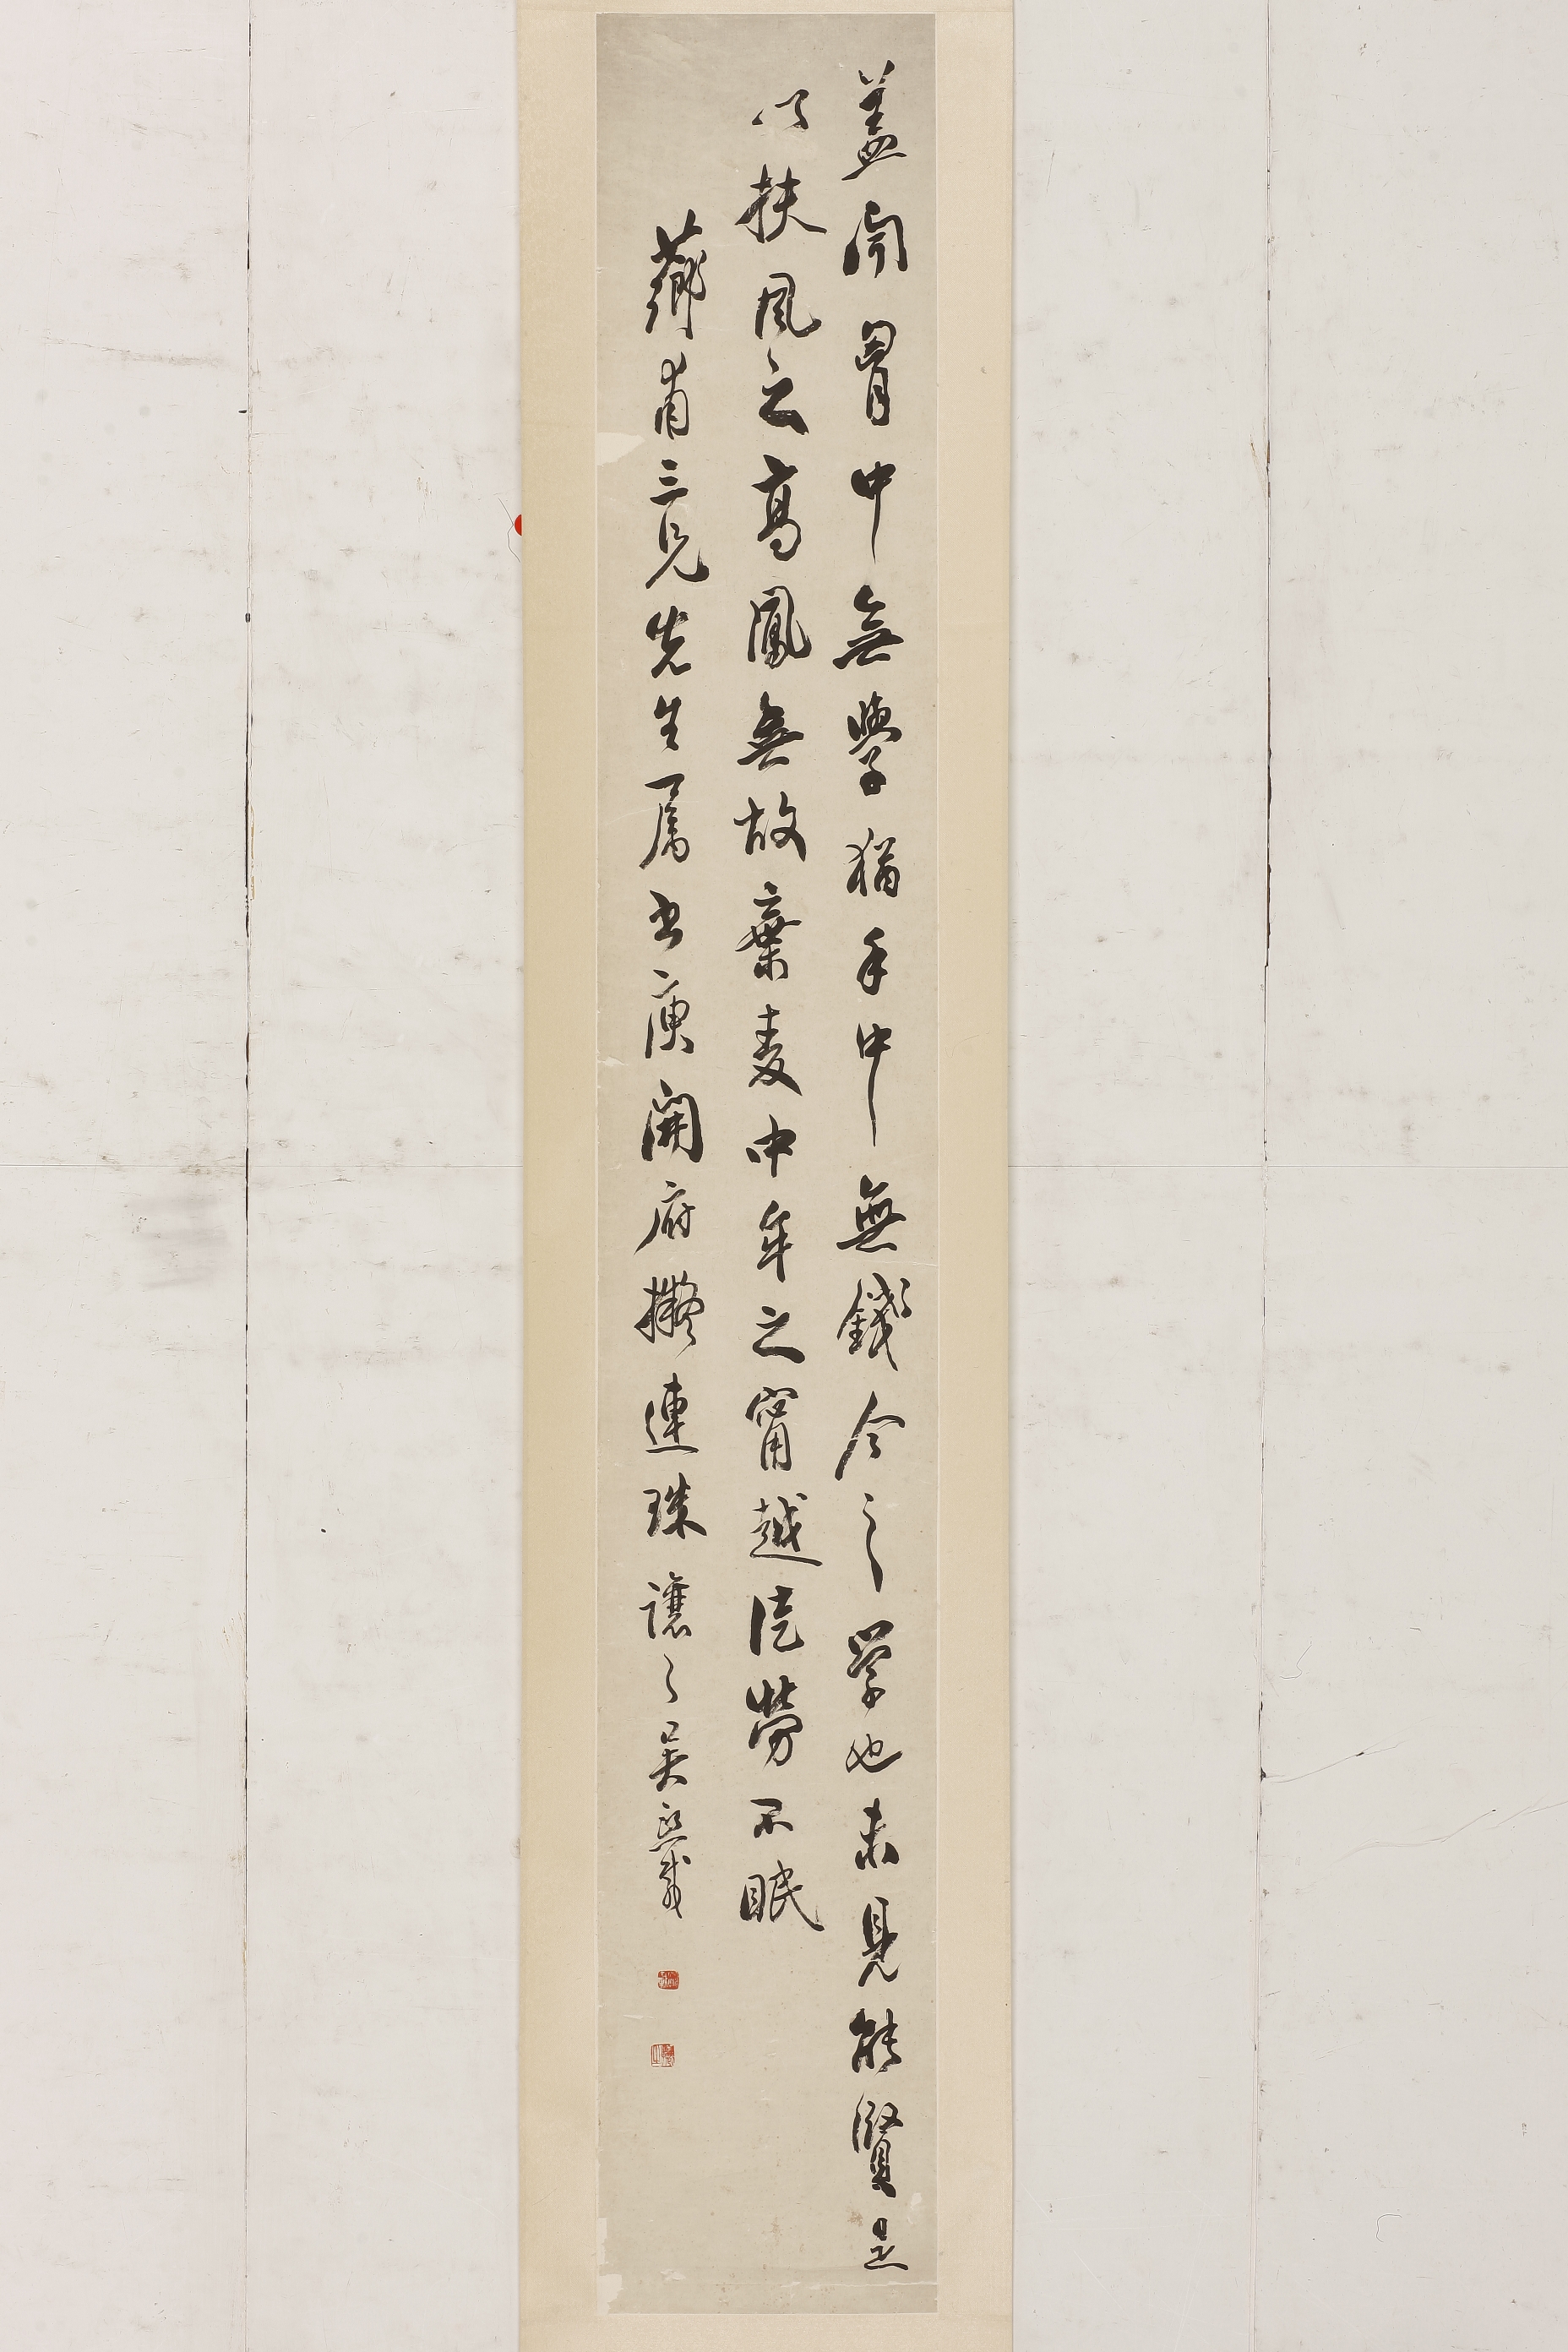 蓋聞胷中無學猶手中無錢今之學也未見能賢是
以扶風之高鳳無故棄麦中牟之甯越徒勞不眠
薌甫三兄先生属書庾開府擬連珠讓之吳熙載